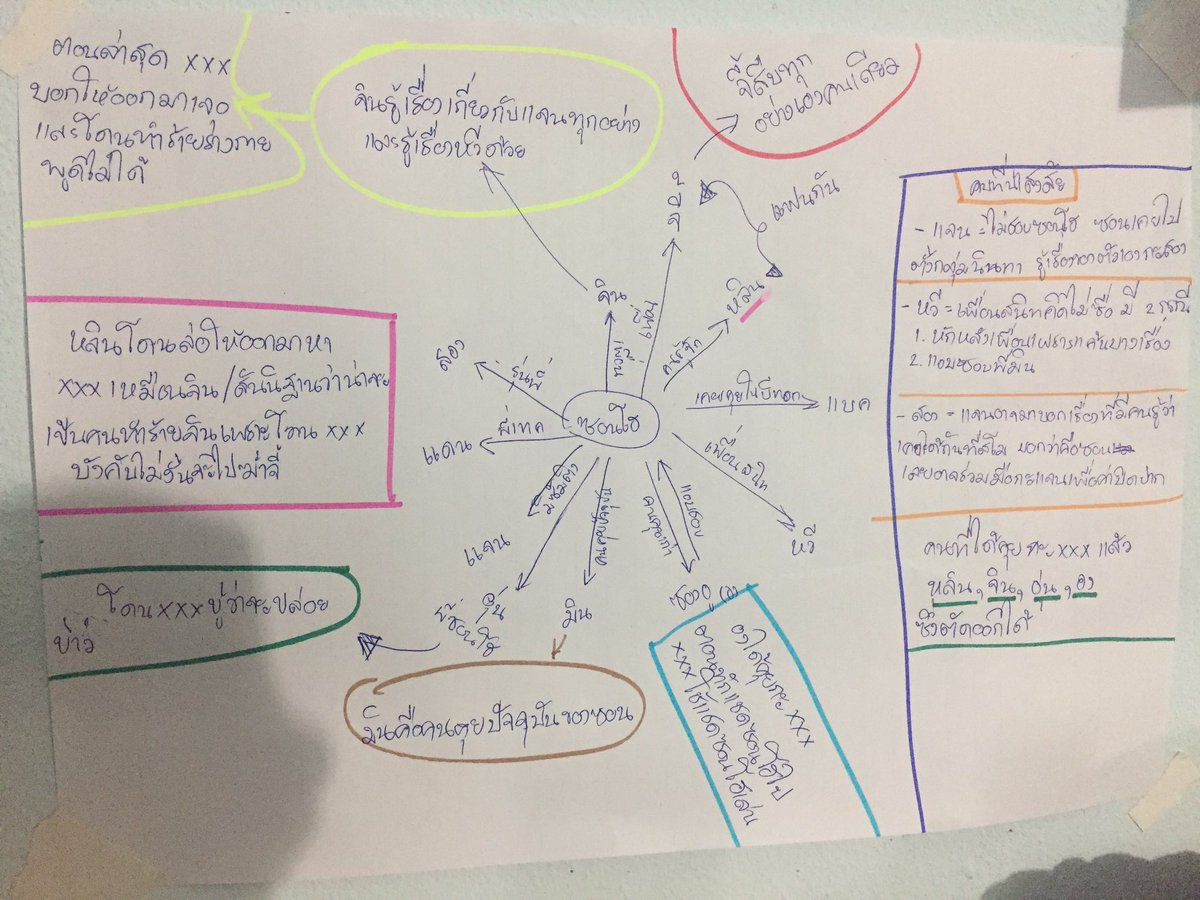 ตอนล่าสุด xxx
บอกให้ออกมาเจอ
และโดนทำร้ายร่างกาย
พูดไม่ได้
จินรู้เรื่องเกี่ยวกับแจนทุกอย่าง
และรู้เรื่องหวีด้วย
จี้สืบทุก
อย่างเองคนเดียว
จี้
แฟนกัน
จิน
เพื่อน
เพื่อน
หลิน
คนรู้จัก
สอง
รุ่นพี่
ซอนโฮ
เคยคุยในบีทอก
แบค
แดน
พี่เทค
เพื่อนสนิท
หวี
แจน
มีซัมติง
อุ่น
พี่ซอนโฮ
คนคุยปัจจุบัน
มิน
คนคุยเก่า
แอบชอบ
หลินโดนล่อให้ออกมาหา
xxx เหมือนจิน/สันนิฐานว่าน่าจะ
เป็นคนทำร้ายจินเพราะโดน xxx
บังคับไม่งั้นจะไปฆ่าจี้
โดน xxx ขู่ว่าจะปล่อย
ข่าว
มินคือคนคุยปัจจุบันของซอน
องได้คุยกะ xxx
ตอนทักแชตซอนโฮไป
xxx ใช้แชตซอนโฮเล่น
คนที่น่าสงสัย
- แจน = ไม่ชอบซอนโฮ ซอนเคยไป
ตั้งกลุ่มนินทา รู้เรื่องของตัวเองกะสอง
- หวี = เพื่อนสนิทคิดไม่ซื่อ มี 2 กรณี
1. หักหลังเพื่อนเพราะแค้นบางเรื่อง
2. แอบชอบพี่มิน
- สอง = แจนอาจมาบอกเรื่องที่มีคนรู้ว่า
เคยได้กันที่สโม บอกว่าคือซอน
เลยอาจร่วมมือกะแจนเพื่อฆ่าปิดปาก
คนที่ได้คุยกะ xxx แล้ว
หลิน, จิน, อุ่น, อง
ซึ่งตัดออกได้